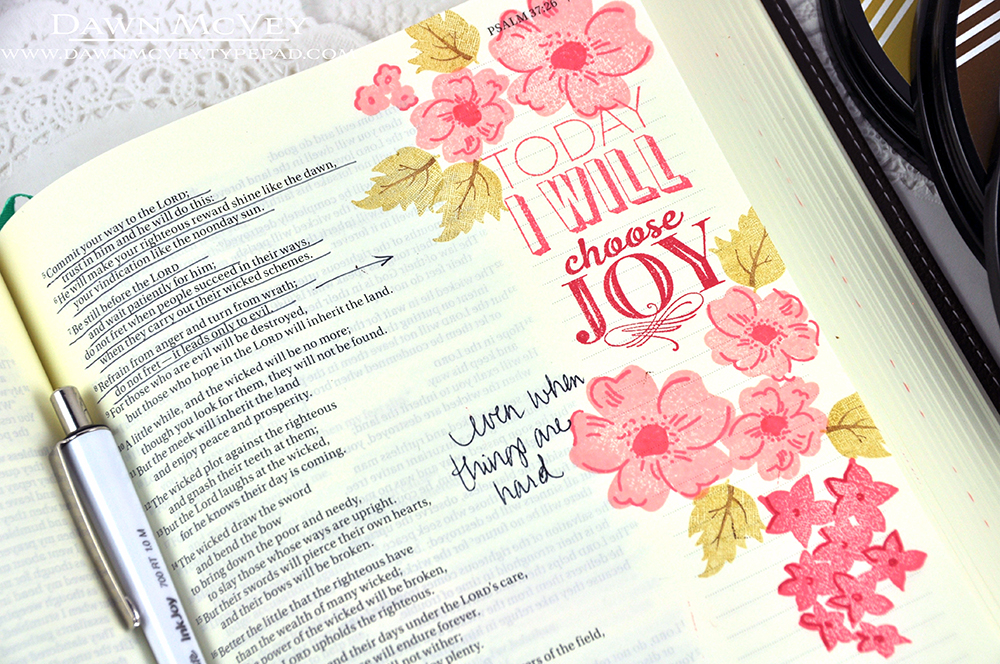 DAWN MCVEY
WWW.DAWNMCVEY.TYPEPAD.COM
PSALM 37:26
TODAY
I WILL
choose
JOY
even when
things are
hard
5Commit your way to the LORD;
trust in him and he will do this:
6He will make your righteous reward shine like the dawn,
your vindication like the noonday sun.
7Be still before the LORD
and wait patiently for him;
do not fret when people succeed in their ways,
when they carry out their wicked schemes.
8Refrain from anger and turn from wrath;
do not fret—it leads only to evil.
9For those who are evil will be destroyed,
but those who hope in the LORD will inherit the land.
10A little while, and the wicked will be no more;
though you look for them, they will not be found.
11But the meek will inherit the land
and enjoy peace and prosperity.
12The wicked plot against the righteous
and gnash their teeth at them;
13but the Lord laughs at the wicked,
for he knows their day is coming.
14The wicked draw the sword
and bend the bow
to bring down the poor and needy,
to slay those whose ways are upright.
15But their swords will pierce their own hearts,
and their bows will be broken.
16Better the little that the righteous have
than the wealth of many wicked;
power of the wicked will be broken,
LORD upholds the righteous.
their days under the LORD's care,
will endure forever.
will not wither;
plenty.
of the field,
InkJoy 700 RT 1.0 M